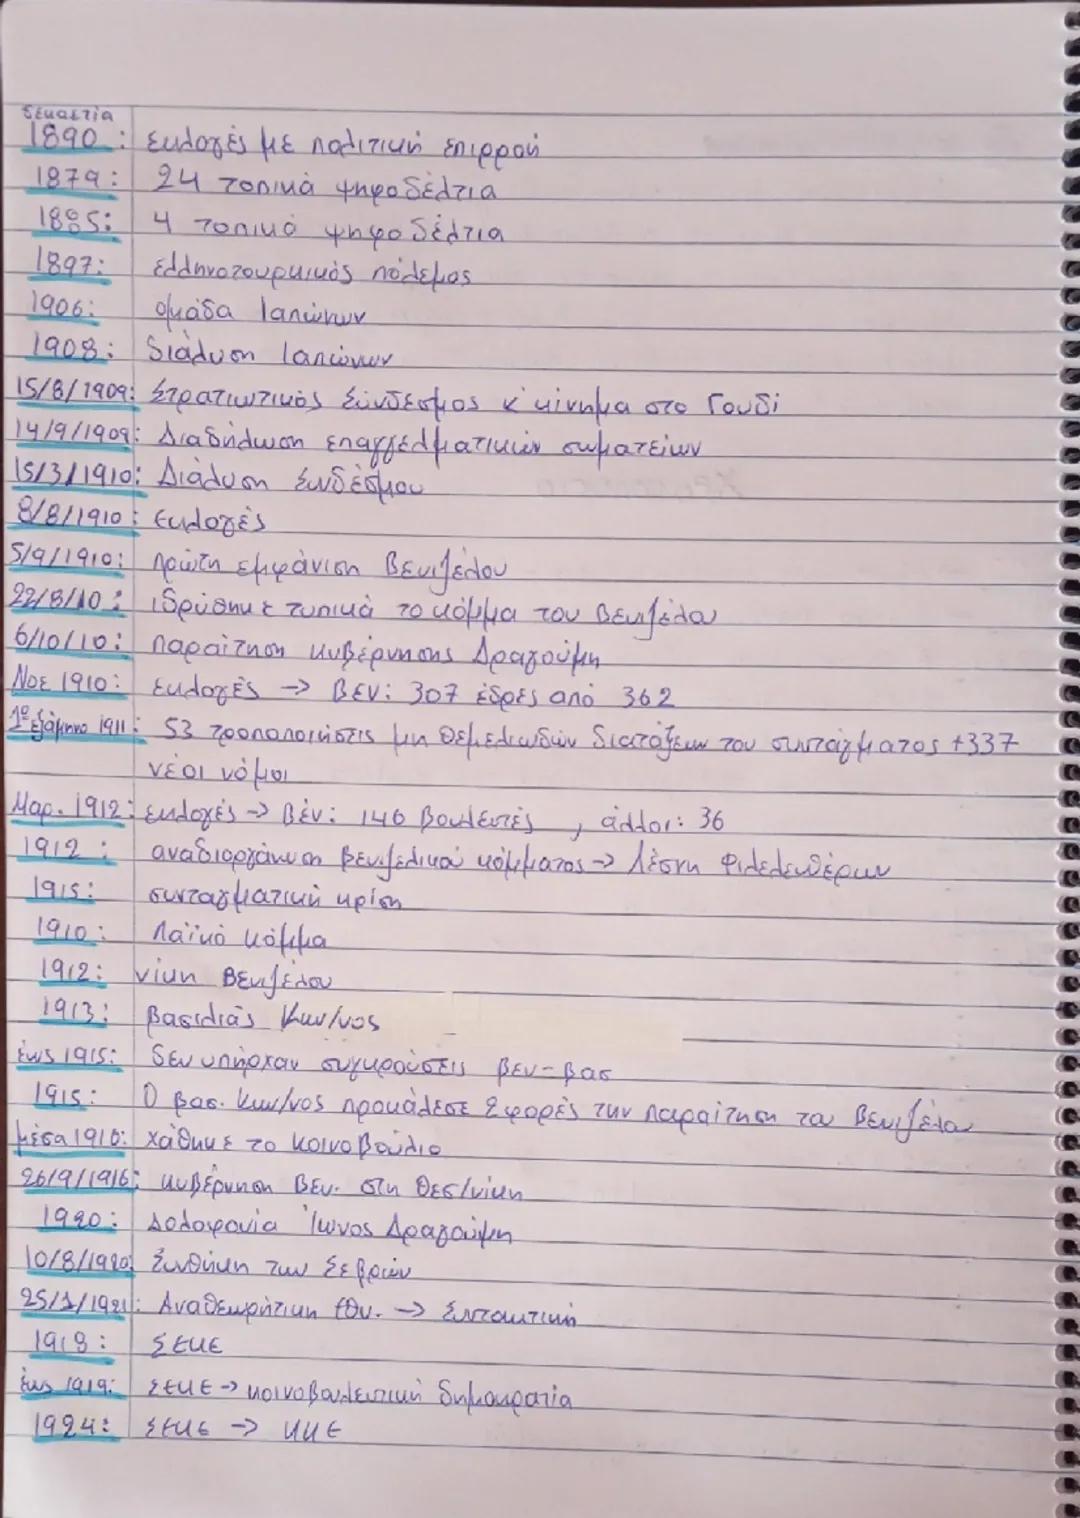 δεκαετία
1890: Εκλογές με πολιτική επιρροή
1879: 24 τοπικά ψηφοδέλτια
1885: 4 τοπικά ψηφοδέλτια
1897: ελληνοτουρκικός πόλεμος
1906: ομάδα Ιαπώνων
1908: διάλυση Ιαπώνων
15/8/1909: Στρατιωτικός Σύνδεσμος κ' κίνημα στο Γουδί
14/9/1909: Διαδήλωση επαγγελματικών σωματείων
15/3/1910: Διάλυση Συνδέσμου
8/8/1910: Εκλογές
5/9/1910: πρώτη εμφάνιση Βενιζέλου
22/8/10: ιδρύθηκε τυπικά το κόμμα του Βενιζέλου
6/10/10: παραίτηση κυβέρνησης Δραγούμη
Νοε 1910: εκλογές → Βεν: 307 έδρες από 362
1ο εξάμηνο 1911: 53 τροποποιήσεις μη θεμελιωδών διατάξεων του συντάγματος +337
νέοι νόμοι
Μαρ. 1912: εκλογές → Βέν: 146 βουλευτές, άλλοι: 36
1912: αναδιοργάνωση βενιζελικού κόμματος → Λέσχη Φιλελευθέρων
1915: συνταγματική κρίση
1910: Λαϊκό κόμμα
1912: νίκη Βενιζέλου
1913: βασιλιάς Κων/νος
έως 1915: δεν υπήρχαν συγκρούσεις βεν-βασ
1915: Ο βασ. Κων/νος προκάλεσε 2 φορές την παραίτηση του Βενιζέλου
μέσα 1916: χάθηκε το κοινοβούλιο
26/9/1916: κυβέρνηση Βεν. στη Θεσ/νίκη
1920: Δολοφονία Ίωνος Δραγούμη
10/8/1920: Συνθήκη των Σεβρών
25/1/1921: Αναθεωρητική Εθν. → Συντακτική
1918: ΣΕΚΕ
έως 1919: ΣΕΚΕ → κοινοβουλευτική δημοκρατία
1924: ΣΕΚΕ → ΚΚΕ